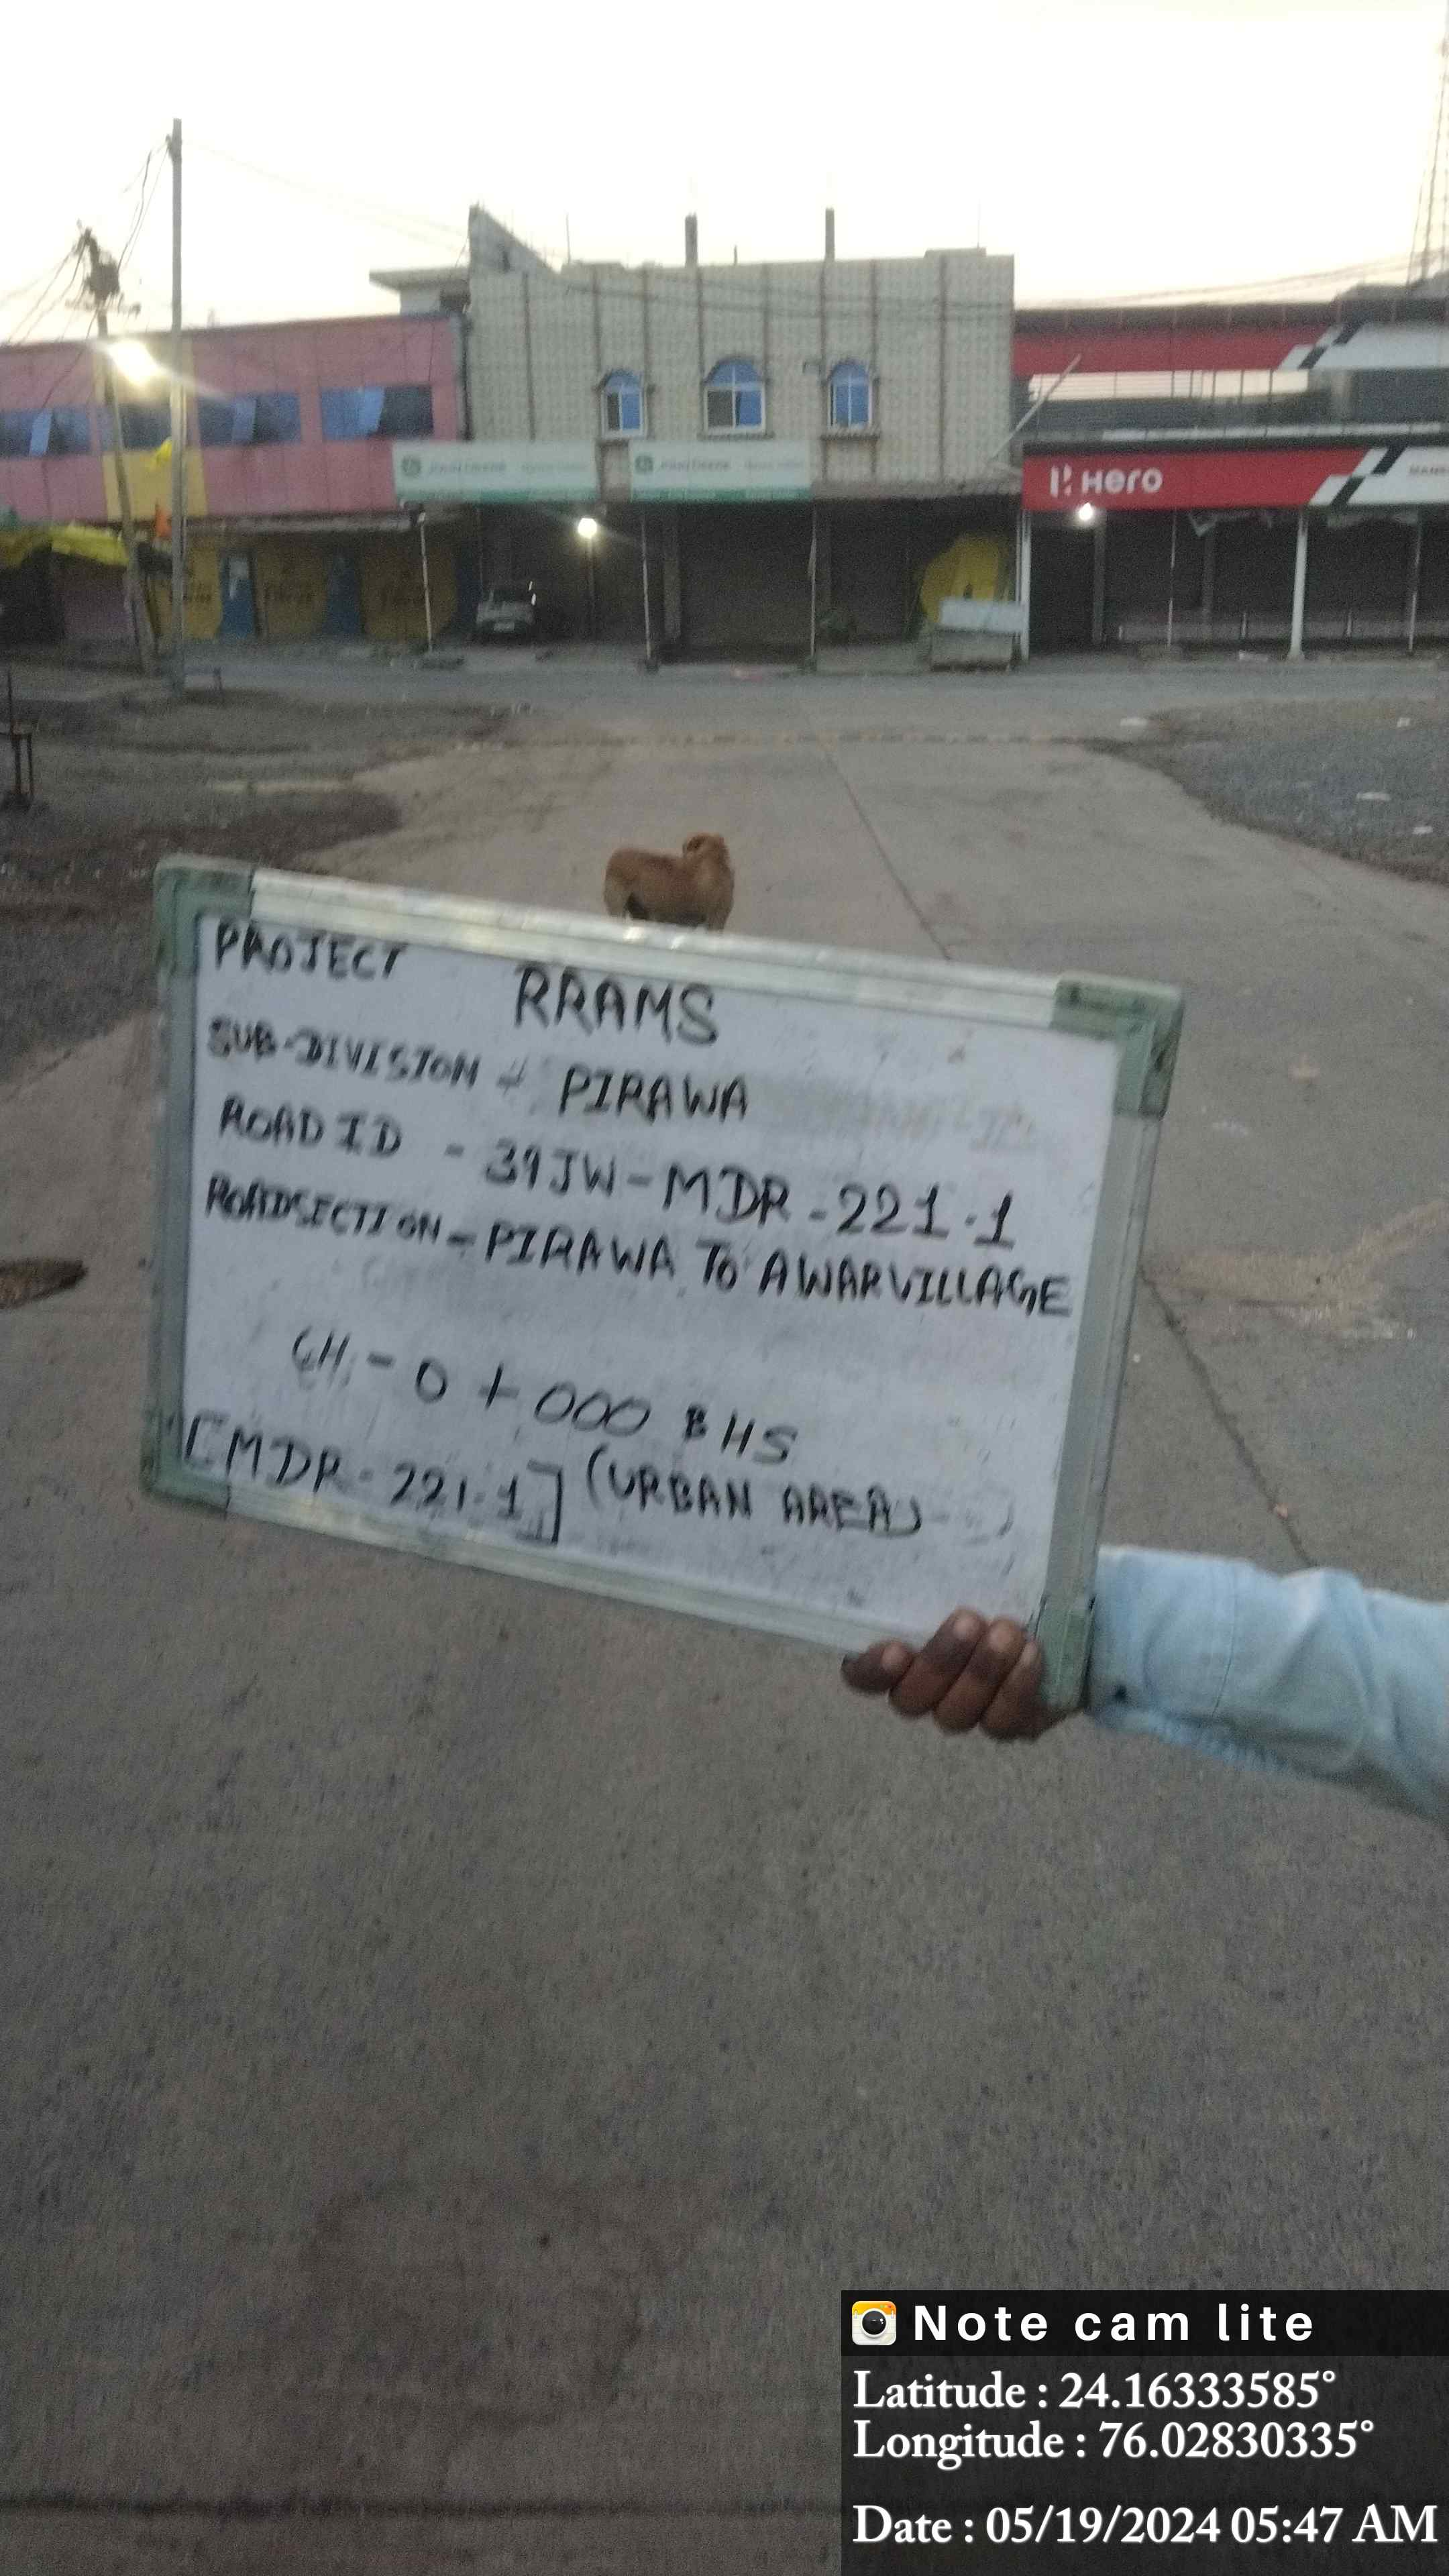 JOHN DEERE
JOHN DEERE
Hero
PROJECT RRAMS
SUB-DIVISION - PIRAWA
ROAD ID - 39JW-MDR-221.1
ROADSECTION - PIRAWA TO AWARVILLAGE
CH - 0+000 BHS
[MDR-221.1] (URBAN AREA)
Note cam lite
Latitude : 24.16333585°
Longitude : 76.02830335°
Date : 05/19/2024 05:47 AM